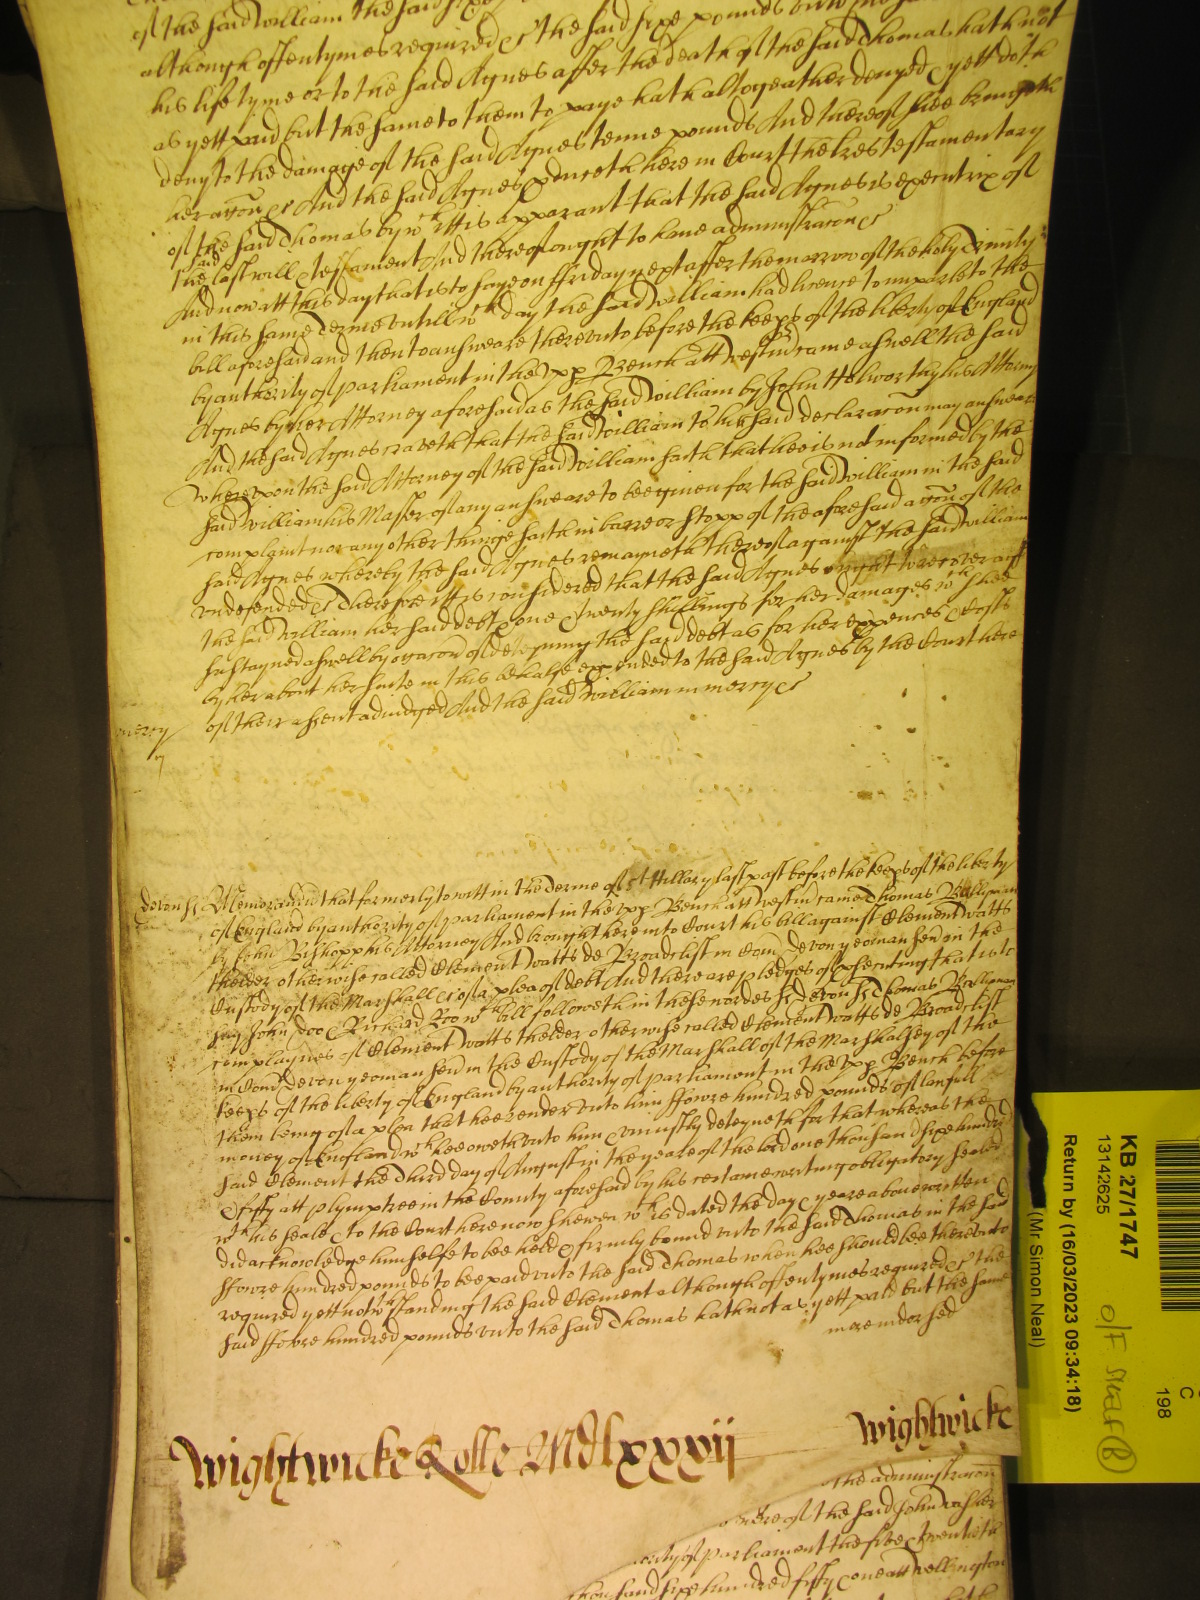 of the said William the said sixe pounds unto the said
although oftentymes required &c the said sixe pounds unto the said Thomas in
his life tyme or to the said Agnes after the death of the said Thomas hath not
as yett paid but the same to them to paye hath altogeather denyed & yett doth
deny to the damage of the said Agnes tenne pounds And thereof shee bringeth
her accon &c And the said Agnes pduceth here in Court the lres testamentary
of the said Thomas by wch itt is apparant that the said Agnes is executrix of
the said last will & testament And thereof ought to have administracon &c
And now att this day that is to saye on ffriday next after the morrow of the holy Trinity
in this same Terme untill wch day the said William had licence to imparle to the
bill aforesaid and then to answeare thereunto before the keeps of the liberty of England
by authority of parliament in the upp Bench att Westm came aswell the said
Agnes by her Attorney aforesaid as the said William by John Holworthy his Attorny
And the said Agnes craveth that the said William to his said declaracon may answeare
whereupon the said Attorney of the said William saith that hee is not informed by the
said William his Master of any answeare to bee given for the said William in the said
complaint nor any other thinge saith in barre or stopp of the aforesaid accon of the
said Agnes whereby the said Agnes remayneth thereof against the said William
undefended &c Therefore itt is considered that the said Agnes ought to recover agt
the said William her said debt & one & twenty shillings for her damages wch shee
sustayned aswell by occacon of deteyning the said debt as for her expences & costs
by her about her suite in this behalfe expended to the said Agnes by the Court here
of their assent adiudged And the said William in mercy &c
mercy
Devon ss Memorandum that formerly to witt in the Terme of St Hillary last past before the keeps of the liberty
of England by authority of parliament in the upp Bench att Westm came Thomas Ballyman
by John Bishopp his Attorney And brought here into Court his bill against Clement Watts
thelder otherwise called Clement Watts de Broadclist in Com Devon yeoman sen in the
Custody of the Marshall &c of a plea of debt And there are pledges of psecuting that is to
say John Doo & Richard Roo wch bill followeth in these wordes ss Devon ss Thomas Ballyman
complaynes of Clement Watts thelder otherwise called Clement Watts de Broadclist
in Com Devon yeoman sen in the Custody of the Marshall of the Marshalsey of the
keeps of the liberty of England by authority of parliament in the upp Bench before
them being of a plea that hee render unto him ffowre hundred pounds of lawfull
money of England wch hee oweth unto him & uniustly deteyneth for that whereas the
said Clement the Third day of August in the yeare of the lord one thousand sixe hundred
& fifty att Plymptree in the County aforesaid by his certaine writing obligatory sealed
wth his seale & to the Court here now shewen wch is dated the day & yeare above written
did acknowledge himselfe to bee held & firmly bound unto the said Thomas in the said
ffowre hundred pounds to bee paid unto the said Thomas when hee should bee thereunto
required yett notwthstanding the said Clement although oftentymes required &c the
said ffowre hundred pounds unto the said Thomas hath not as yett paid but the same
more indorsed
Wightwicke Rolle MDlxxxvij
Wightwicke
the administracon
of the said John
of parliament the five & twentieth
thousand sixe hundred fifty & one att Wellington
KB 27/1747
13142625
Return by (16/03/2023 09:34:18)
(Mr Simon Neal)
C
198